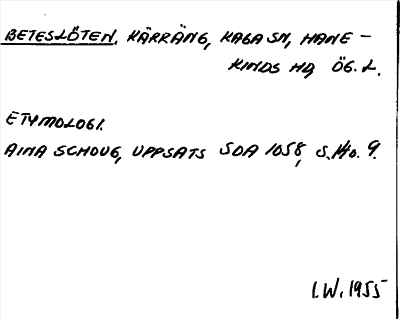 BETESLÖTEN, KÄRRÄNG, KAGA SN, HANE-
KINDS HD, ÖG. L.
ETYMOLOGI.
AINA SCHOUG, UPPSATS SOA 1058, S. 9.
I.W. 1955